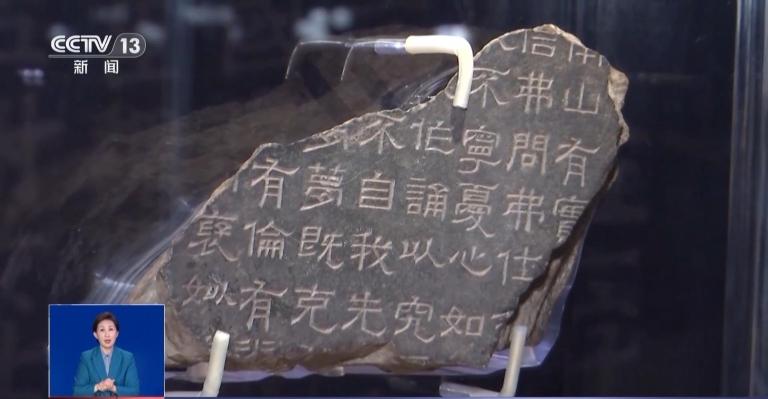 CCTV 13
新闻
南山有實
信弗問弗仕
不寧憂心如
伯誦以究
不自我先
夢既克
有倫有
襃姒